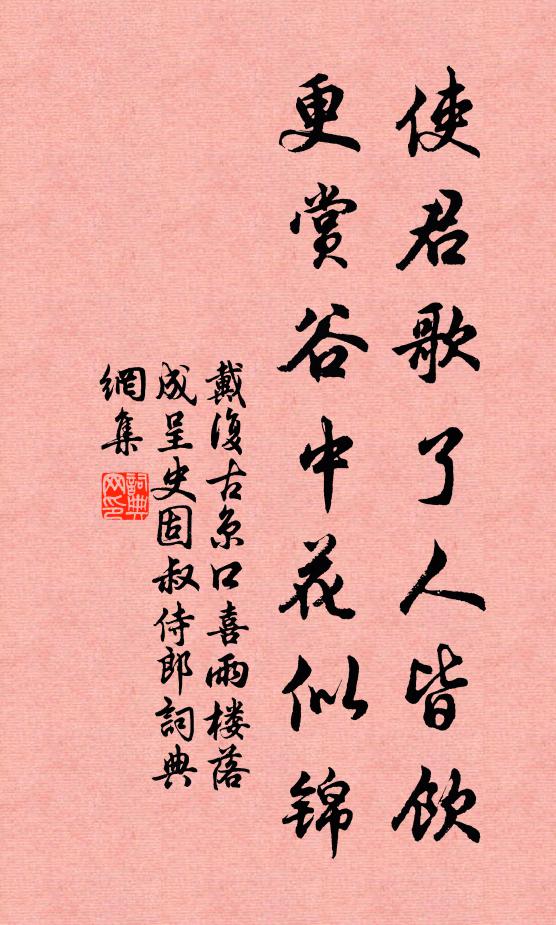 使君歌了人皆飲
更賞谷中花似錦
戴復古京口喜雨楼落
成呈史固叔侍郎詞典
網集
詞典
网印